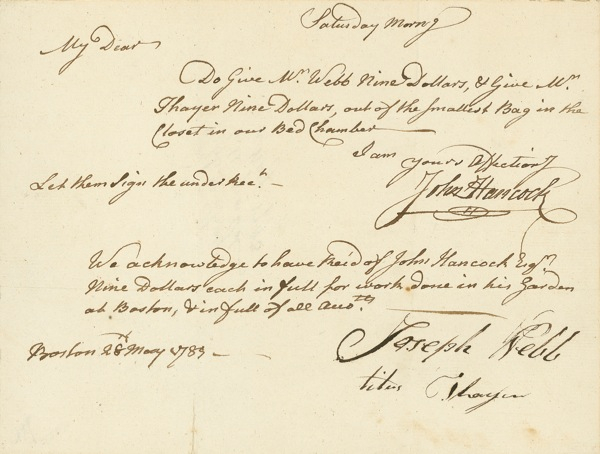 Saturday Morng
My Dear
Do Give Mr. Webb Nine Dollars, & Give Mr.
Thayer Nine Dollars, out of the Smallest Bag in the
Closet in our Bed Chamber
I am
yours Affectiony
Let them Sign the under Rect. –
John Hancock
We acknowledge to have Rec'd of John Hancock Esqr.
Nine Dollars each in full for work done in his Garden
at Boston, & in full of all
Boston 28th May 1783 –
Joseph Webb
titus Thayer